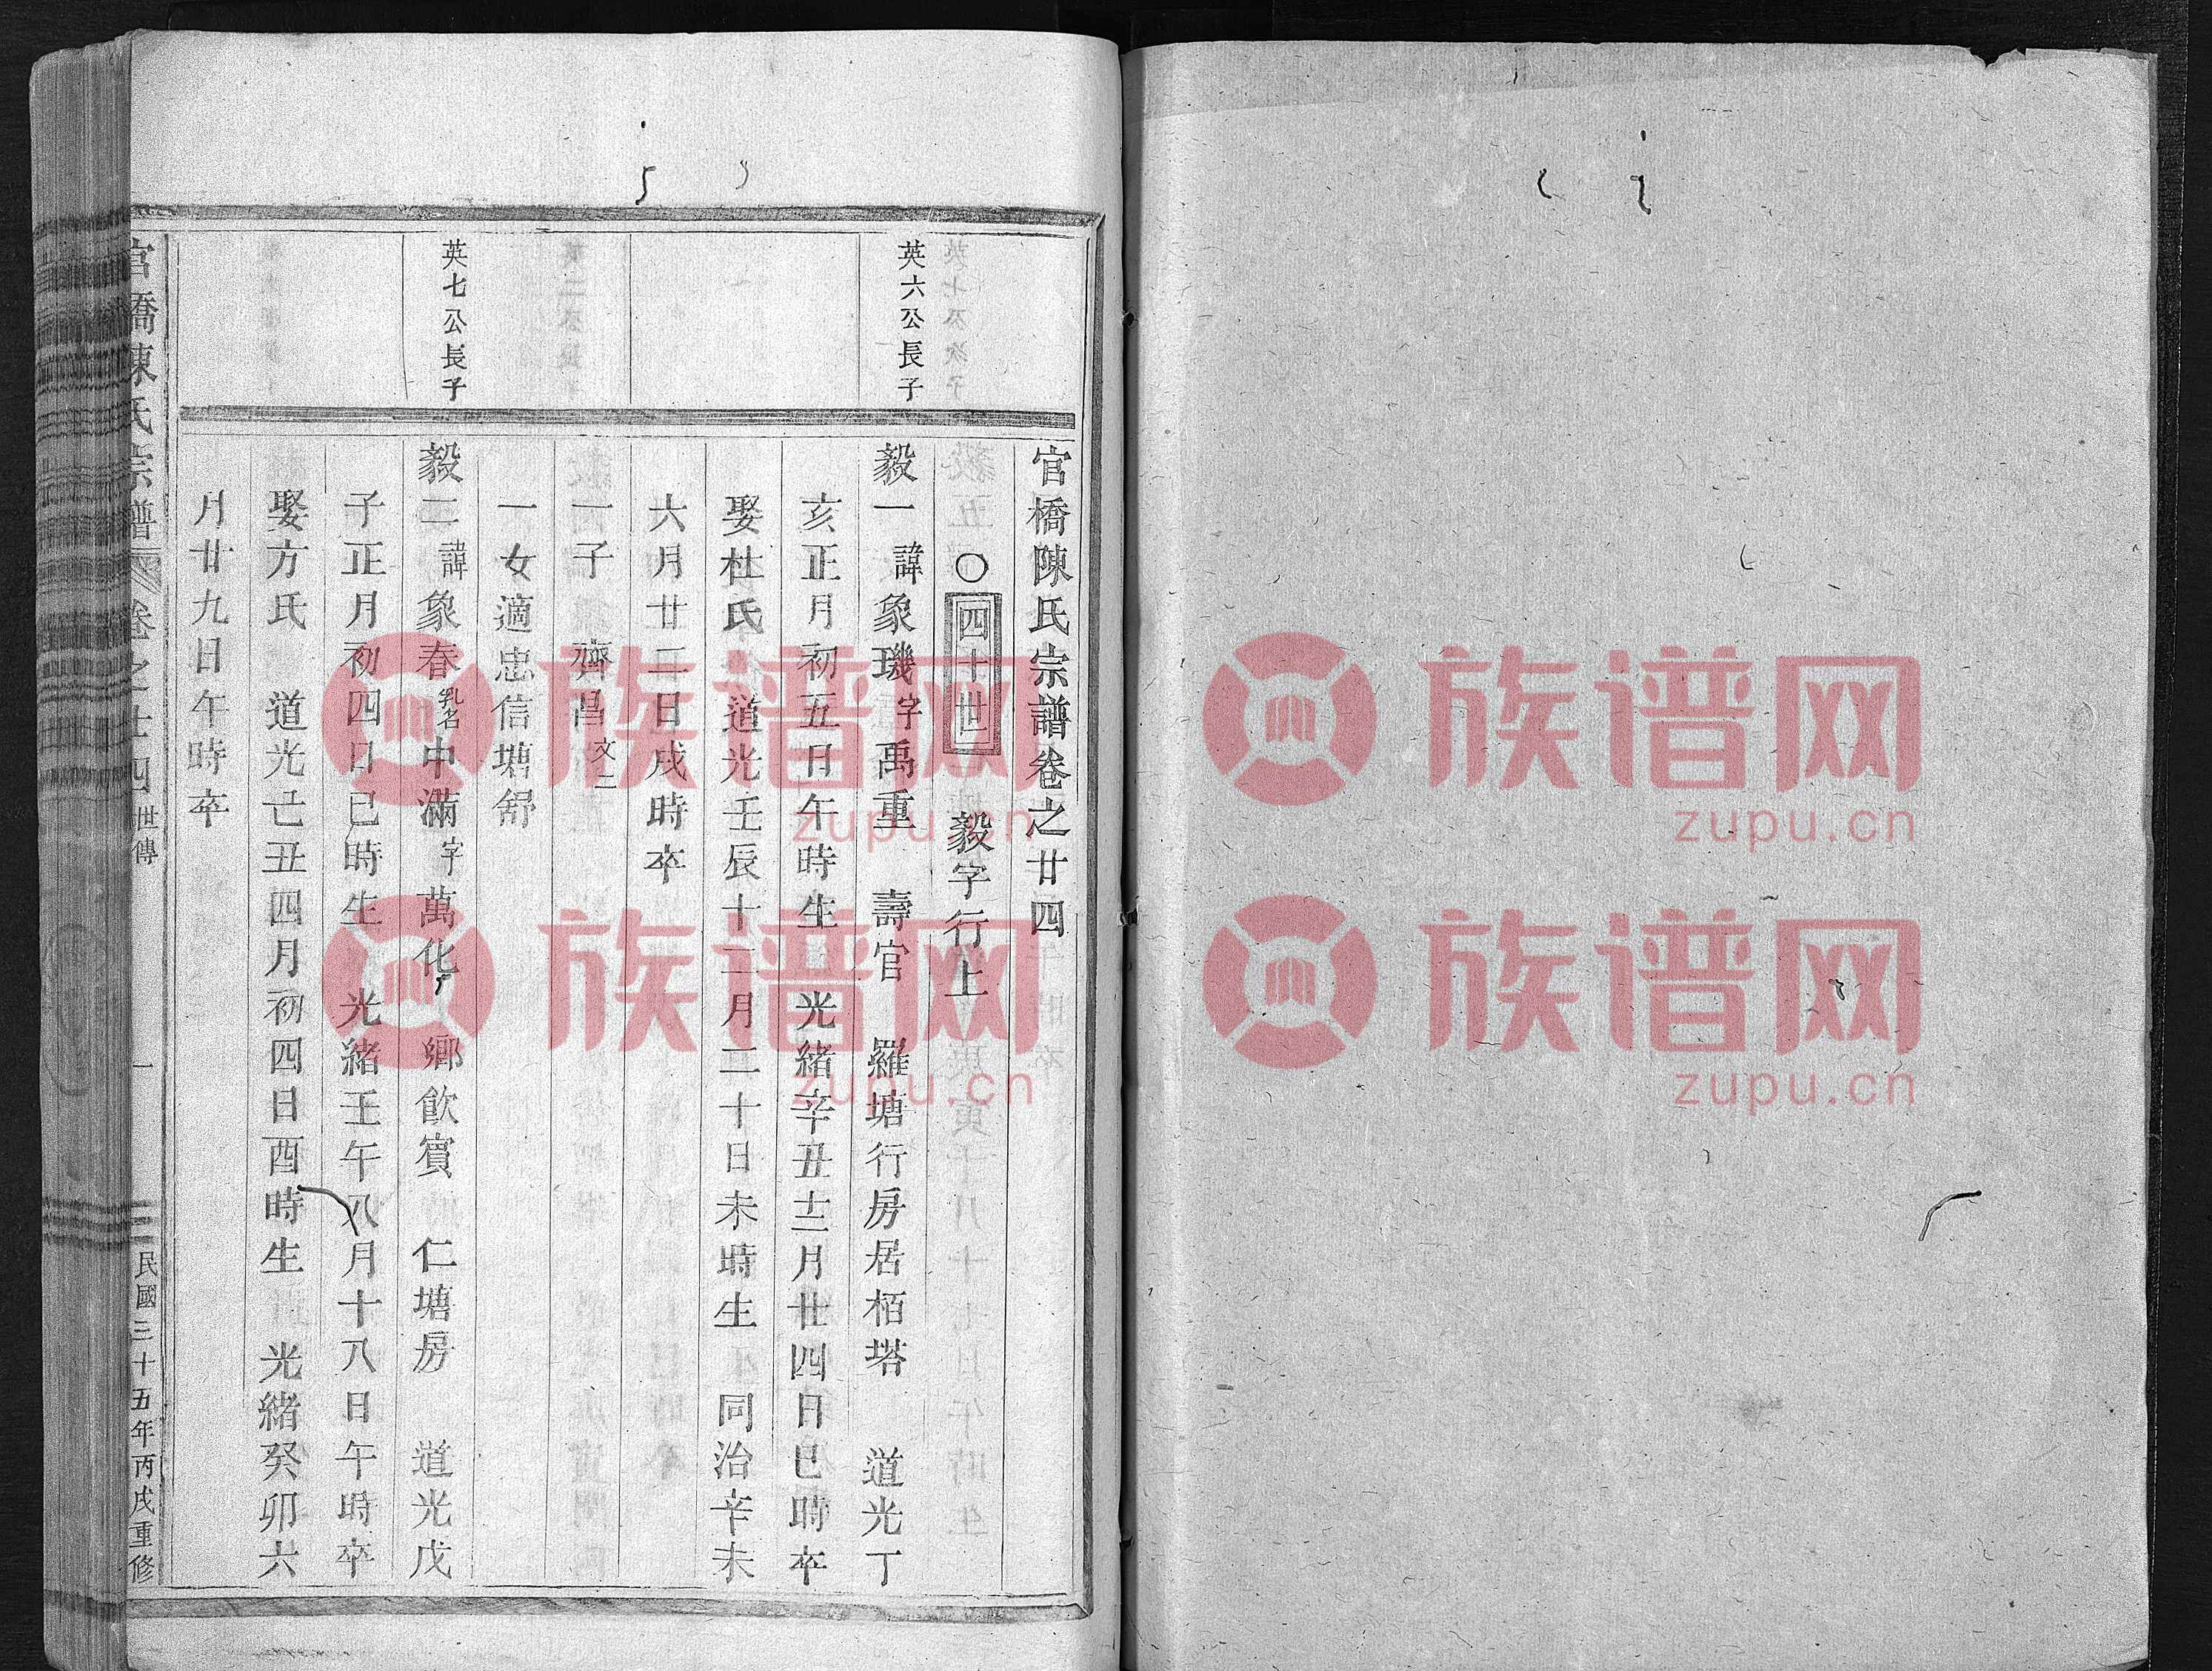 官橋陳氏宗譜卷之廿四
○四十世 毅字行上
英六公長子
毅一 諱象璣 字禹重 壽官 羅塘行房居栢塔 道光丁
亥正月初五日午時生 光緒辛丑十二月廿四日巳時卒
娶杜氏 道光壬辰十二月二十日未時生 同治辛未
六月廿二日戌時卒
一子 齊昌 文二
一女適忠信塘舒
英七公長子
毅二 諱象春 乳名中滿 字萬化 鄉飲賓 仁塘房 道光戊
子正月初四日巳時生 光緒壬午八月十八日午時卒
娶方氏 道光己丑四月初四日酉時生 光緒癸卯六
月廿九日午時卒
官橋陳氏宗譜 卷之廿四 世傳 一 民國三十五年丙戌重修
族谱网
zupu.cn
族谱网
zupu.cn
族谱网
zupu.cn
族谱网
zupu.cn